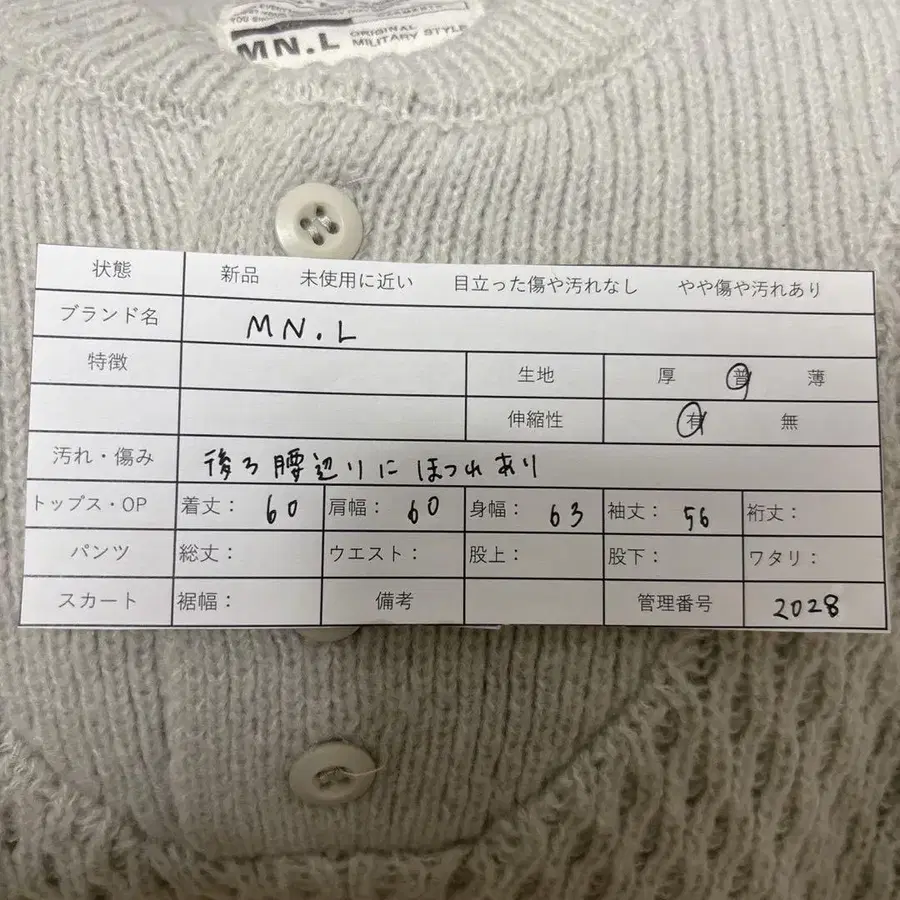 YOU
MN.L ORIGINAL MILITARY STYLE
状態 新品 未使用に近い 目立った傷や汚れなし やや傷や汚れあり
ブランド名 MN.L
特徴 生地 厚 普 薄
伸縮性 有 無
汚れ・傷み 後ろ腰辺りにほつれあり
トップス・OP 着丈: 60 肩幅: 60 身幅: 63 袖丈: 56 裄丈:
パンツ 総丈: ウエスト: 股上: 股下: ワタリ:
スカート 裾幅: 備考 管理番号 2028